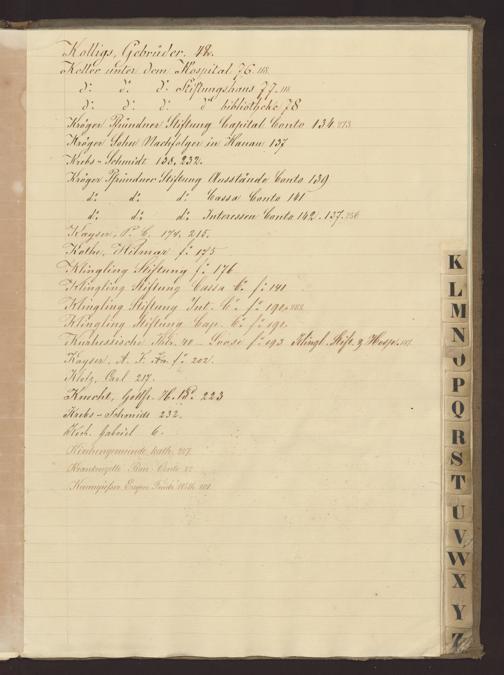 Kolligs, Gebrüder. 42.
Keller unter dem Hospital 76. 118.
d:o d:o d:o Stiftungshaus 77. 118
d:o d:o d:o d:o bibliothek 78
Kröger Pfründner Stiftung Capital Conto 134. 273.
Kröger Sohn Nachfolger in Hanau 137
Krebs-Schmidt 138. 232.
Kröger Pfründner Stiftung Ausstände Conto 139
d:o d:o d:o Cassa Conto 141
d:o d:o d:o Interessen Conto 142. 137. 256
Kayser, P. C. 174. 215.
Kothe, Hilmar f:o 175
Klingling Stiftung f:o 176
Klingling Stiftung Cassa C:o f:o
Klingling Stiftung Int. C:o f:o 190.
Klingling Stiftung Cap. C:o f:o 191.
Kurhessische 40 Loose f:o 193 Klingl. Stift. & Hosp.
Kayser, A. F. f:o 202.
Klotz, Carl 217.
Knecht, Gottfr. H. 223
Krebs-Schmidt 232.
Gabriel 6.
Kirchengemeinde, kath. 267.
Conto
Kanngießer Eugen
K
L
M
N
O
P
Q
R
S
T
U
V
W
X
Y
Z